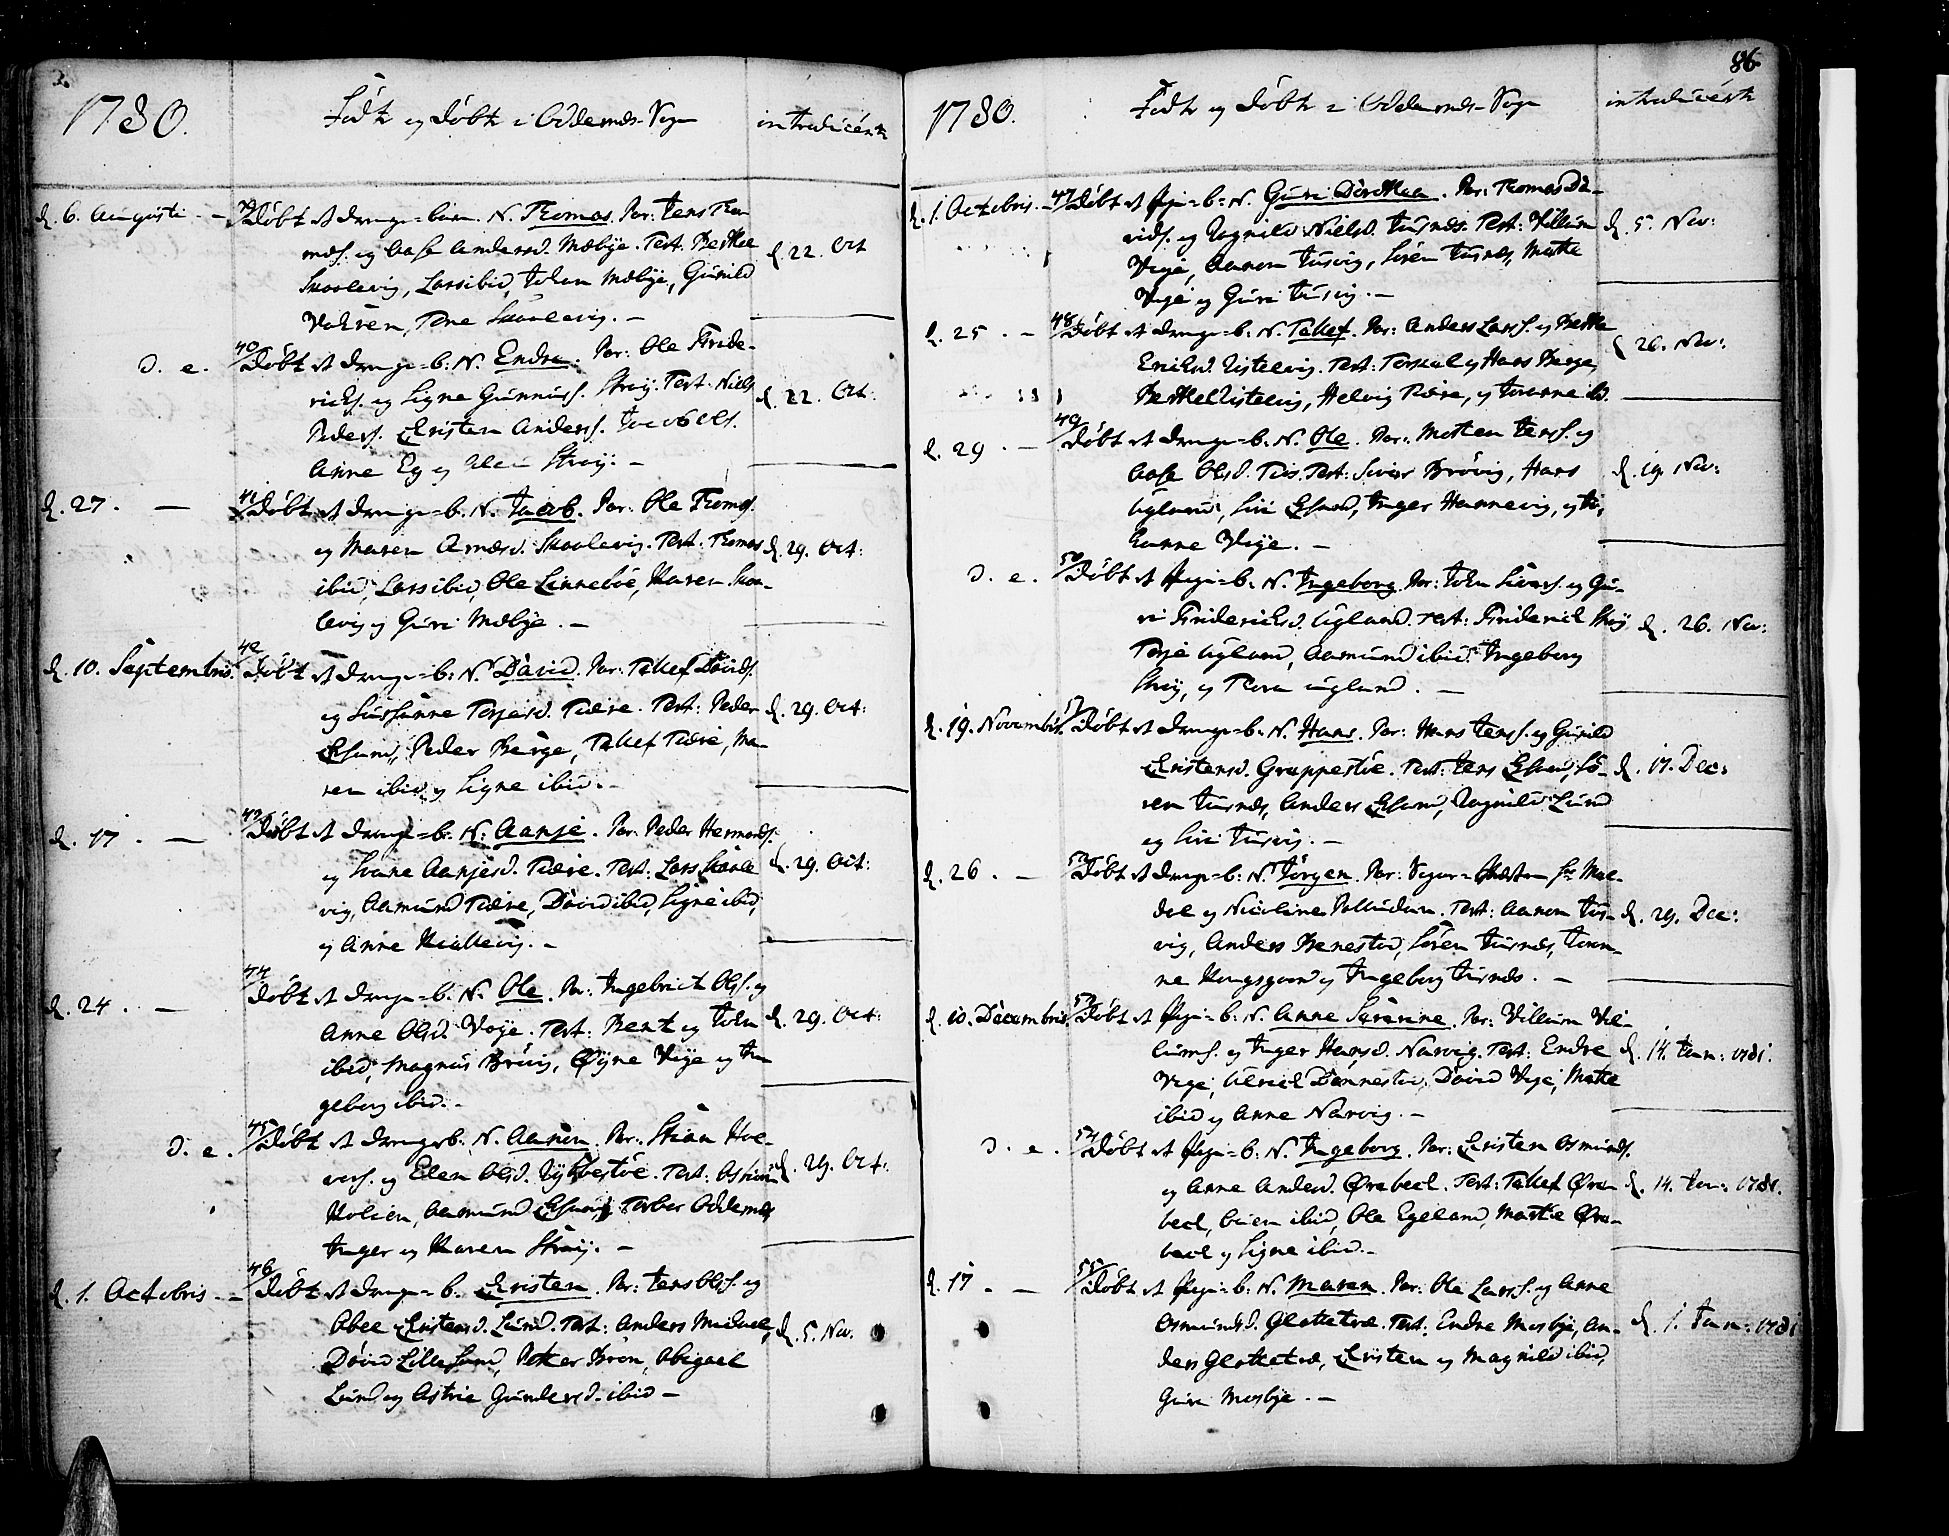 1780.
Födte og döbte i Oddernæs-Sogn
introducerte
d. 6. Augusti. - 39/ Döbt et drenge-barn. N. Thomas. Par: Jens Thom
mæs. og Aase Andersd. Mæbye. Test: Berthe
Skaalevig, Lars ibid, Johan Mæbye, Gunild
Tone Skaalevig. -
d. 22. Oct
d. e. 40/ Döbt et drenge-b: N. Endre. Par: Ole Fride-
richs. og Signe Gunnufs. Stray. Test: Niels
Peders. Christen Anders. Jacob Ols.
Anne Eg og Stray. -
d. 22. Oct:
d. 27. - 41/ Döbt et drenge-b. N. Jacob. Par: Ole Thomes.
og Maren Arnesd. Skaalevig. Test: Thomas
ibid, Lars ibid, Ole Linneböe, Maren Skaa-
levig og Guri Mæbye. -
d. 29. Oct:
d. 10. Septembris. 42/ Döbt et drenge-b: N. David. Par: Tallef Davids.
og Sussanne Terjesd. Tære. Test: Peder
Peder Berge, Tallef Tære, Ma-
ren ibid og Signe ibid. -
d. 29. Oct:
d. 17. - 43/ Döbt et drenge-b. N: Aanje. Par: Peder Hermands.
og Aanjesd. Tære. Test: Lars Skaale
vig, Aamund Tære, David ibid, Signe ibid,
og Anne -
d. 29. Oct:
d. 24. - 44/ Döbt et drenge-b. N. Ole. Par: Ingebrict Ols. og
Anne Olsd. Voye. Test: Bent og John
ibid, Magnus Brövig, Øyne Voye og In
geborg ibid. -
d. 29. Oct:
d. e. 45/ Döbt et drenge-b. N. Aanon. Par: Stian Hoe-
vers. og Elen Olsd. Test:
Aamund Torber Oddernæs
Inger og Maren Stray. -
d. 29. Oct:
d. 1. Octobris - 46/ Döbt et drenge-b. Christen. Par: Jens Ols. og
Abel Christensd. Lund. Test: Anders Michael,
David Lille Lund, Petter Bron, Abigael
Lund og Astrie Gundersd. ibid -
d. 5. Nov.
86
1780.
Födte og döbte i Oddernæs-Sogn
introducerte
d. 1. Octobris. - 47/ Döbt et Pige-b: N. Guri Dorthea. Par: Thomas Da-
vids. og Ragnild Nielsd. Tusnæs. Test: Villum
Voye, Aanon Tusvig, Sören Tusnæs, Mætte
Voye og Guri Tusvig. -
d. 5. Nov:
d. 25. - 48/ Döbt et drenge-b: N. Tallef. Par: Anders Lars. og Berthe
Erichsd. Test: Torkel og Hans Berge,
Berthe Helvig Tære, og Joranne ib.
d. 26. Nov:
d. 29. - 49/ Döbt et drenge-b. N. Ole. Par: Morten Jens. og
Aase Olsd. Test: Siver Brövig, Hans
Ugland, Siri Inger Hannevig, og Jo,
hanne Voye. -
d. 19. Nov:
d. e. 50/ Döbt et Pige-b: N. Ingeborg. Par: John Sivers. og Gu-
ri Friderichsd. Ugland. Test: Friderich Stray
Terje Ugland, Aamund ibid. Ingeborg
Stray, og Thora Ugland. -
d. 26. Nov:
d. 19. Novembris. 51/ Döbt et drenge-b. N. Hans. Par: Hans Jens. og Gunild
Christensd. Grappestöe. Test: Jens Sö-
ren Tusnæs, Anders Ragnild Lund
og Siri Tusvig. -
d. 17. Dec:
d. 26. - 52/ Döbt et drenge-b: N. Jörgen. Par: Sogne-Præsten Hr. Moe-
og Nicoline Palludan. Test: Aanon Tus-
vig, Anders Benestad, Sören Tusnæs, Joran-
ne Kongsgaard og Ingeborg Tusnæs. -
d. 29. Dec:
d. 10. Decembris. 53/ Döbt et Pige-b: N. Anne Severine. Par: Villum Vil-
lums. og Inger Hansd. Narvig. Test: Endre
Voye, Ulrich Dønnestad, David Voye, Mætte
ibid og Anne Narvig. -
d. 14. Jan: 1781.
d. e. 54/ Döbt et Pige-b: N. Ingeborg. Par: Christen Osmunds.
og Anne Andersd. Ørebech. Test: Tallef Øre-
bech, ibid, Ole Egeland, Marthe Øre-
bech og Signe ibid. -
d. 14. Jan: 1781.
d. 17. - 55/ Döbt et Pige-b: N. Maren. Par: Ole Lars. og Anne
Osmundsd. Glattetræ. Test: Endre Mosbye, An-
ders Glattetræ, Christen og Magnild ibid,
Guri Mosbye. -
d. 1. Jan: 1781